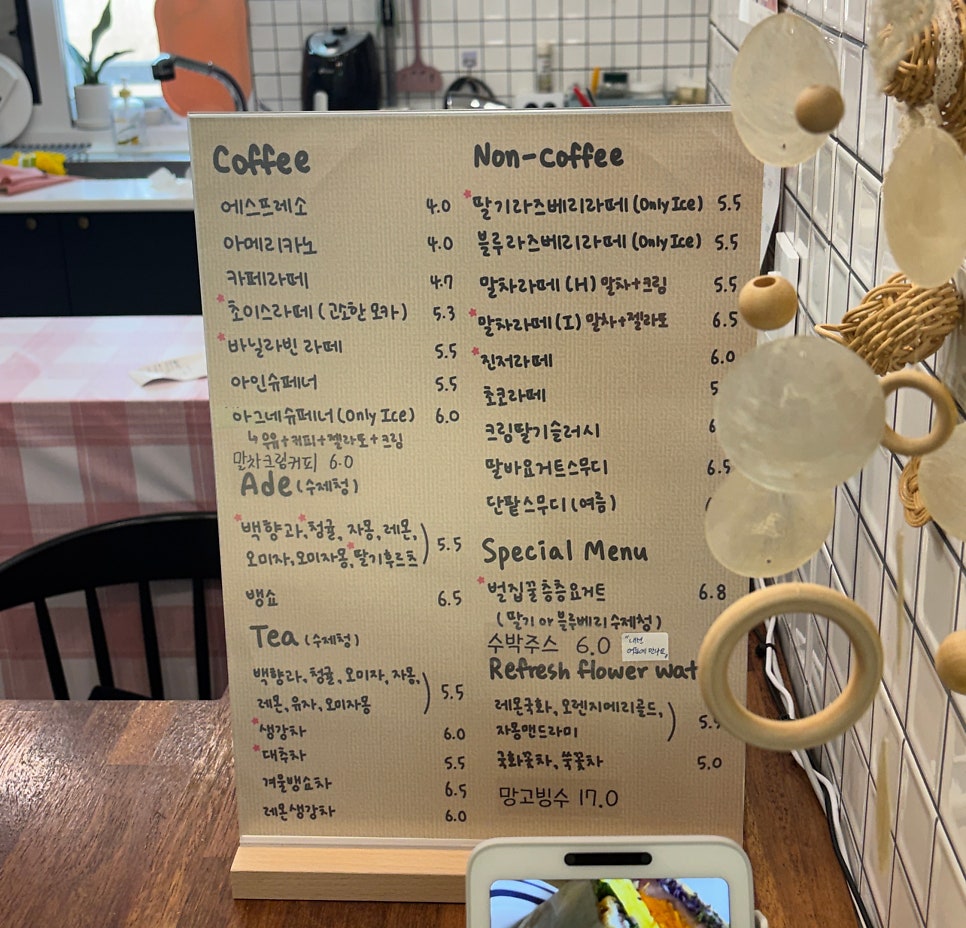 Coffee
에스프레소 4.0
아메리카노 4.0
카페라떼 4.7
초이스라떼 (고소한 모카) 5.3
바닐라빈 라떼 5.5
아인슈페너 5.5
아그네슈페너 (Only Ice) 6.0
↳ 우유+커피+젤라또+크림
만차크림커피 6.0
Ade (수제청)
백향과, 청귤, 자몽, 레몬,
오미자, 오미자몽, 딸기후르츠) 5.5
뱅쇼 6.5
Tea (수제청)
백향과, 청귤, 오미자, 자몽,
레몬, 유자, 오미자몽) 5.5
생강차 6.0
대추차 5.5
겨울뱅쇼차 6.5
레몬생강차 6.0
Non-coffee
딸기라즈베리라떼 (Only Ice) 5.5
블루라즈베리라떼 (Only Ice) 5.5
말차라떼 (H) 말차+크림 5.5
말차라떼 (I) 말차+젤라또 6.5
진저라떼 6.0
초코라떼 5
크림딸기슬러시 6
딸바요거트스무디 6.5
단팥스무디 (여름)
Special Menu
벌집꿀층층요거트 6.8
(딸기 or 블루베리 수제청)
수박주스 6.0
Refresh flower wat
레몬국화, 오렌지메리골드,
자몽맨드라미) 5.
국화꽃차, 쑥꽃차 5.0
망고빙수 17.0